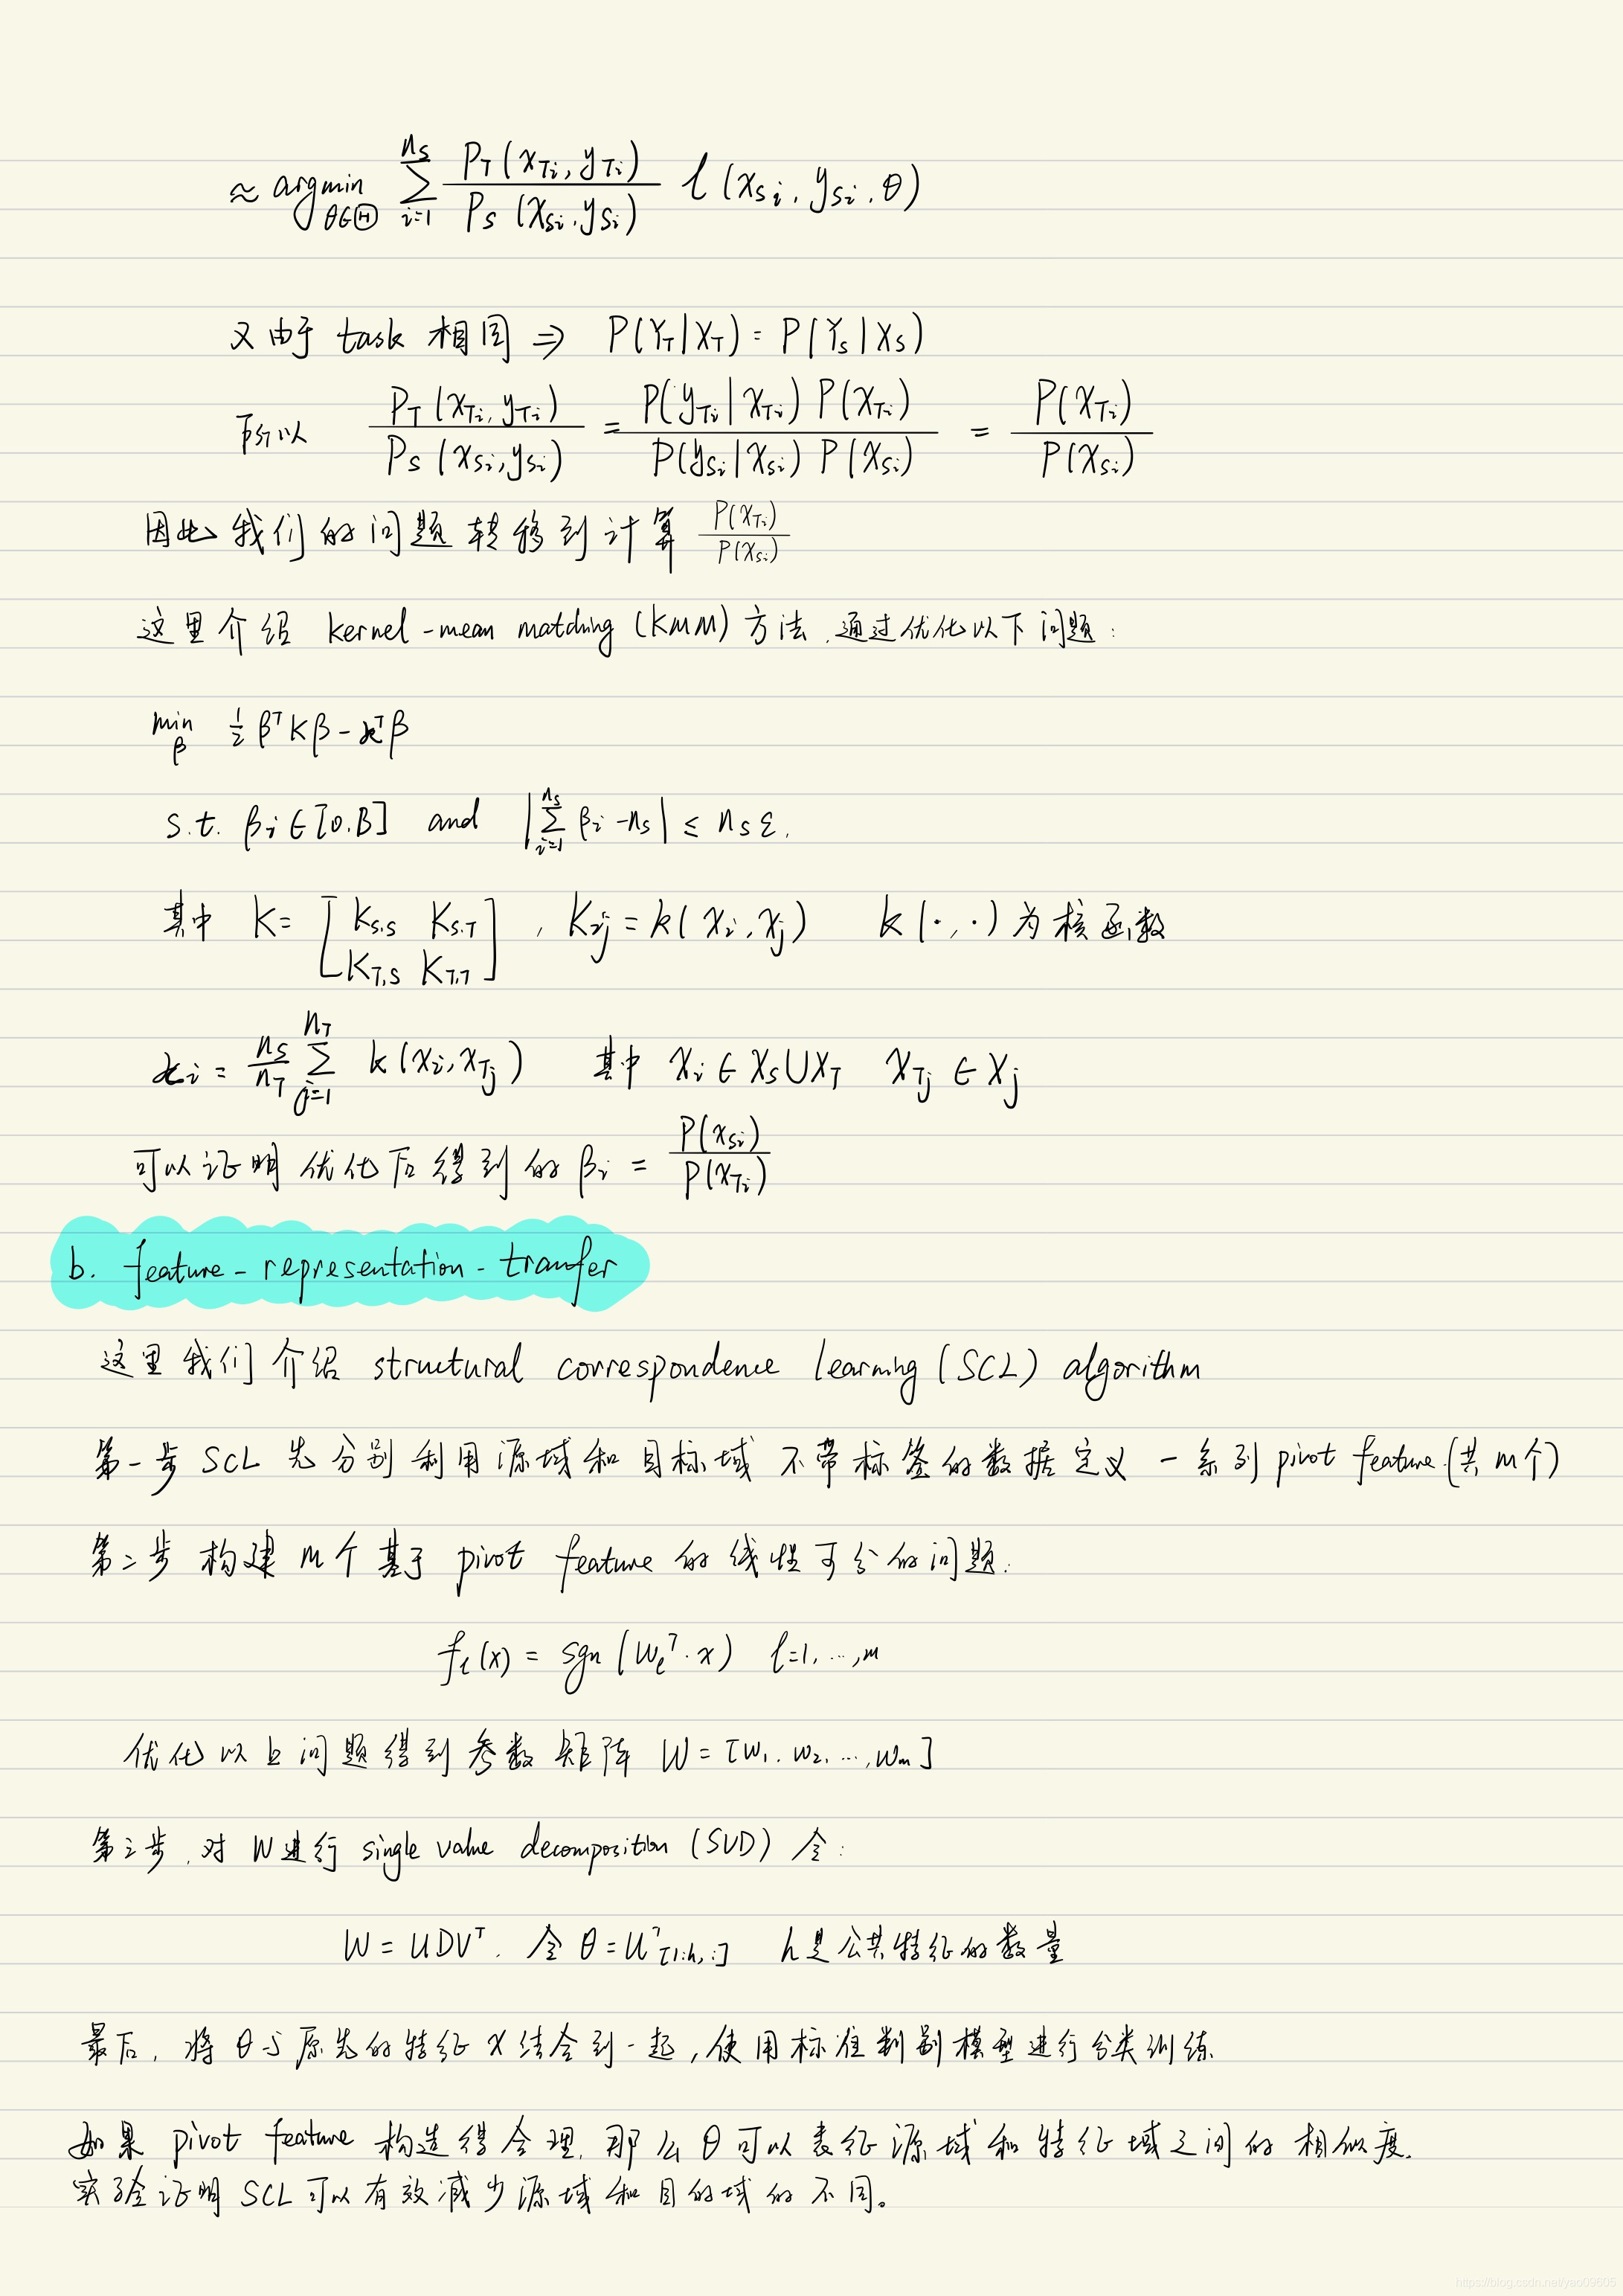 ≈ argmin_{θ∈Θ} Σ_{i=1}^{n_S} P_T(x_{Ti}, y_{Ti}) / P_S(x_{Si}, y_{Si}) l(x_{Si}, y_{Si}, θ)
又由于 task 相同 ⇒ P(Y_T|X_T) = P(Y_S|X_S)
所以 P_T(x_{Ti}, y_{Ti}) / P_S(x_{Si}, y_{Si}) = P(y_{Ti}|x_{Ti}) P(x_{Ti}) / P(y_{Si}|x_{Si}) P(x_{Si}) = P(x_{Ti}) / P(x_{Si})
因此 我们的问题转移到计算 P(x_{Ti}) / P(x_{Si})
这里介绍 kernel-mean matching (KMM) 方法, 通过优化以下问题:
min_β 1/2 β^T K β - κ^T β
s.t. β_i ∈ [0, B] and |Σ_{i=1}^{n_S} β_i - n_S| ≤ n_S ε.
其中 K = [K_{S,S} K_{S,T}; K_{T,S} K_{T,T}], K_{ij} = k(x_i, x_j) k(·,·) 为核函数
κ_i = n_S/n_T Σ_{j=1}^{n_T} k(x_i, x_{Tj}) 其中 x_i ∈ X_S ∪ X_T x_{Tj} ∈ X_j
可以证明优化后得到的 β_i = P(x_{Si}) / P(x_{Ti})
b. feature-representation-tranfer
这里我们介绍 structural correspondence learning (SCL) algorithm
第一步 SCL 先分别利用源域和目标域不带标签的数据定义一系列 pivot feature.(共m个)
第二步 构建m个基于 pivot feature 的线性可分的问题.
f_l(x) = sgn(w_l^T · x) l=1, ..., m
优化以上问题得到参数矩阵 W = [w_1, w_2, ..., w_m]
第三步, 对 W 进行 single value decomposition (SVD) 令:
W = UDV^T. 令 θ = U^T_{[1:h, :]} h是公共特征的数量
最后, 将 θ 与原先的特征 x 结合到一起, 使用标准判别模型进行分类训练.
如果 pivot feature 构造得合理, 那么 θ 可以表征源域和特征域之间的相似度.
实验证明 SCL 可以有效减少源域和目的域的不同。
https://blog.csdn.net/yao09605